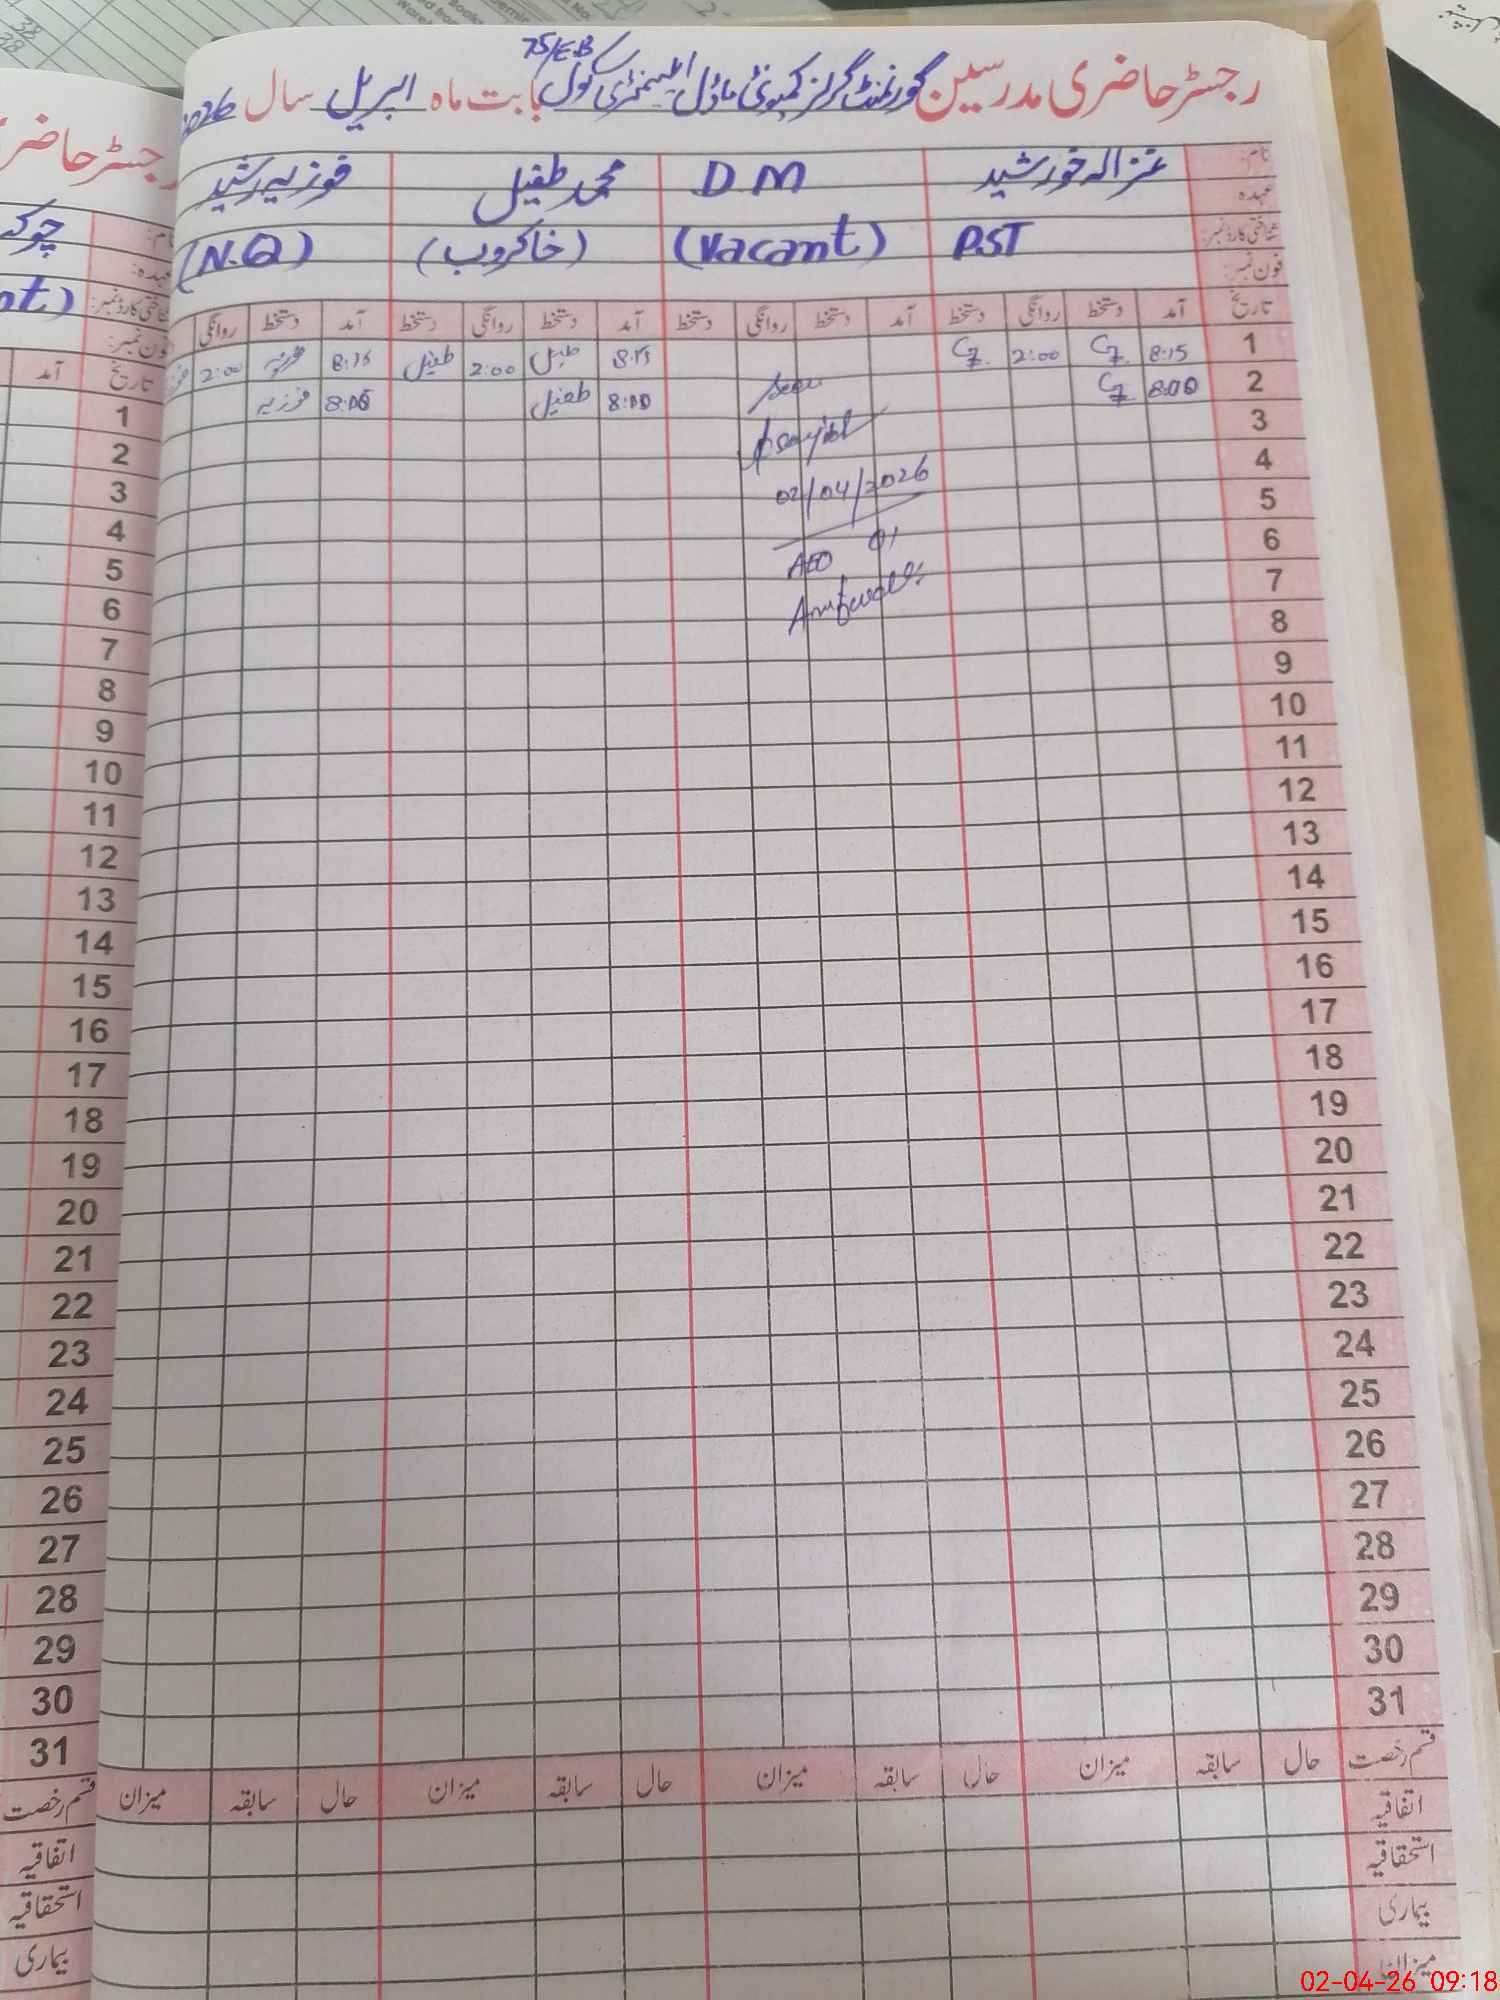 رجسٹر حاضری مدرسین گورنمنٹ گرلز کمیونٹی ماڈل ایلیمنٹری سکول 75/E.B بابت ماہ اپریل سال 2026
نام: غزالہ خورشید D M محمد طفیل فوزیہ رشید
عہدہ
شناختی کارڈ نمبر: P.ST (Vacant) (خاکروب) (N.Q)
فون نمبر:
تاریخ آمد دستخط روانگی دستخط آمد دستخط روانگی دستخط آمد دستخط روانگی دستخط آمد دستخط روانگی
1 8:15 2:00 8:15 طفیل 2:00 طفیل 8:15 فوزیہ 2:00
2 8:00 8:00 طفیل 8:00 فوزیہ
3
4
02/04/2026
5
6
AEO
7
8
9
10
11
12
13
14
15
16
17
18
19
20
21
22
23
24
25
26
27
28
29
30
31
قسم رخصت حال سابقہ میزان حال سابقہ میزان حال سابقہ میزان حال سابقہ میزان
اتفاقیہ
استحقاقیہ
بیماری
میزان
رجسٹر حاضری
نام:
عہدہ:
شناختی کارڈ نمبر:
فون نمبر:
تاریخ آمد
1
2
3
4
5
6
7
8
9
10
11
12
13
14
15
16
17
18
19
20
21
22
23
24
25
26
27
28
29
30
31
قسم رخصت
اتفاقیہ
استحقاقیہ
بیماری
02-04-26 09:18